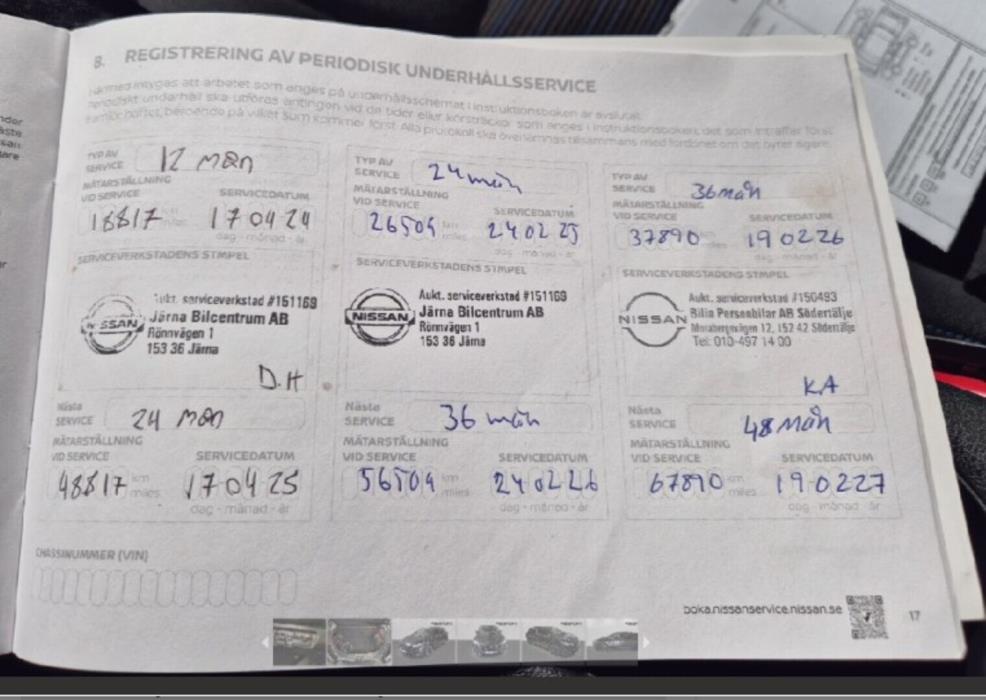 8. REGISTRERING AV PERIODISK UNDERHÅLLSSERVICE
Härmed intygas att arbetet som anges på underhållsschemat i instruktionsboken är avslutat.
Periodiskt underhåll ska utföras antingen vid de tider eller körsträckor som anges i instruktionsboken, det som inträffar först
beroende på vilket som kommer först. Alla protokoll ska överlämnas tillsammans med fordonet om det byter ägare.
TYP AV SERVICE 12 mån
MÄTARSTÄLLNING VID SERVICE SERVICEDATUM
18817 km miles 17 04 24
dag - månad - år
SERVICEVERKSTADENS STMPEL
NISSAN
Aukt. serviceverkstad #151169
Järna Bilcentrum AB
Rönnvägen 1
153 36 Järna
D.H
Nästa SERVICE 24 mån
MÄTARSTÄLLNING VID SERVICE SERVICEDATUM
48817 km miles 17 04 25
dag - månad - år
TYP AV SERVICE 24 mån
MÄTARSTÄLLNING VID SERVICE SERVICEDATUM
26504 km miles 24 02 25
dag - månad - år
SERVICEVERKSTADENS STMPEL
NISSAN
Aukt. serviceverkstad #151169
Järna Bilcentrum AB
Rönnvägen 1
153 36 Järna
Nästa SERVICE 36 mån
MÄTARSTÄLLNING VID SERVICE SERVICEDATUM
56504 km miles 24 02 26
dag - månad - år
TYP AV SERVICE 36 mån
MÄTARSTÄLLNING VID SERVICE SERVICEDATUM
37890 miles 19 02 26
dag - månad - år
SERVICEVERKSTADENS STMPEL
NISSAN
Aukt. serviceverkstad #150493
Bilia Personbilar AB Södertälje
12, 152 42 Södertälje
Tel: 010-497 14 00
KA
Nästa SERVICE 48 mån
MÄTARSTÄLLNING VID SERVICE SERVICEDATUM
67890 km miles 19 02 27
dag - månad - år
CHASSINUMMER (VIN)
boka.nissanservice.nissan.se
17